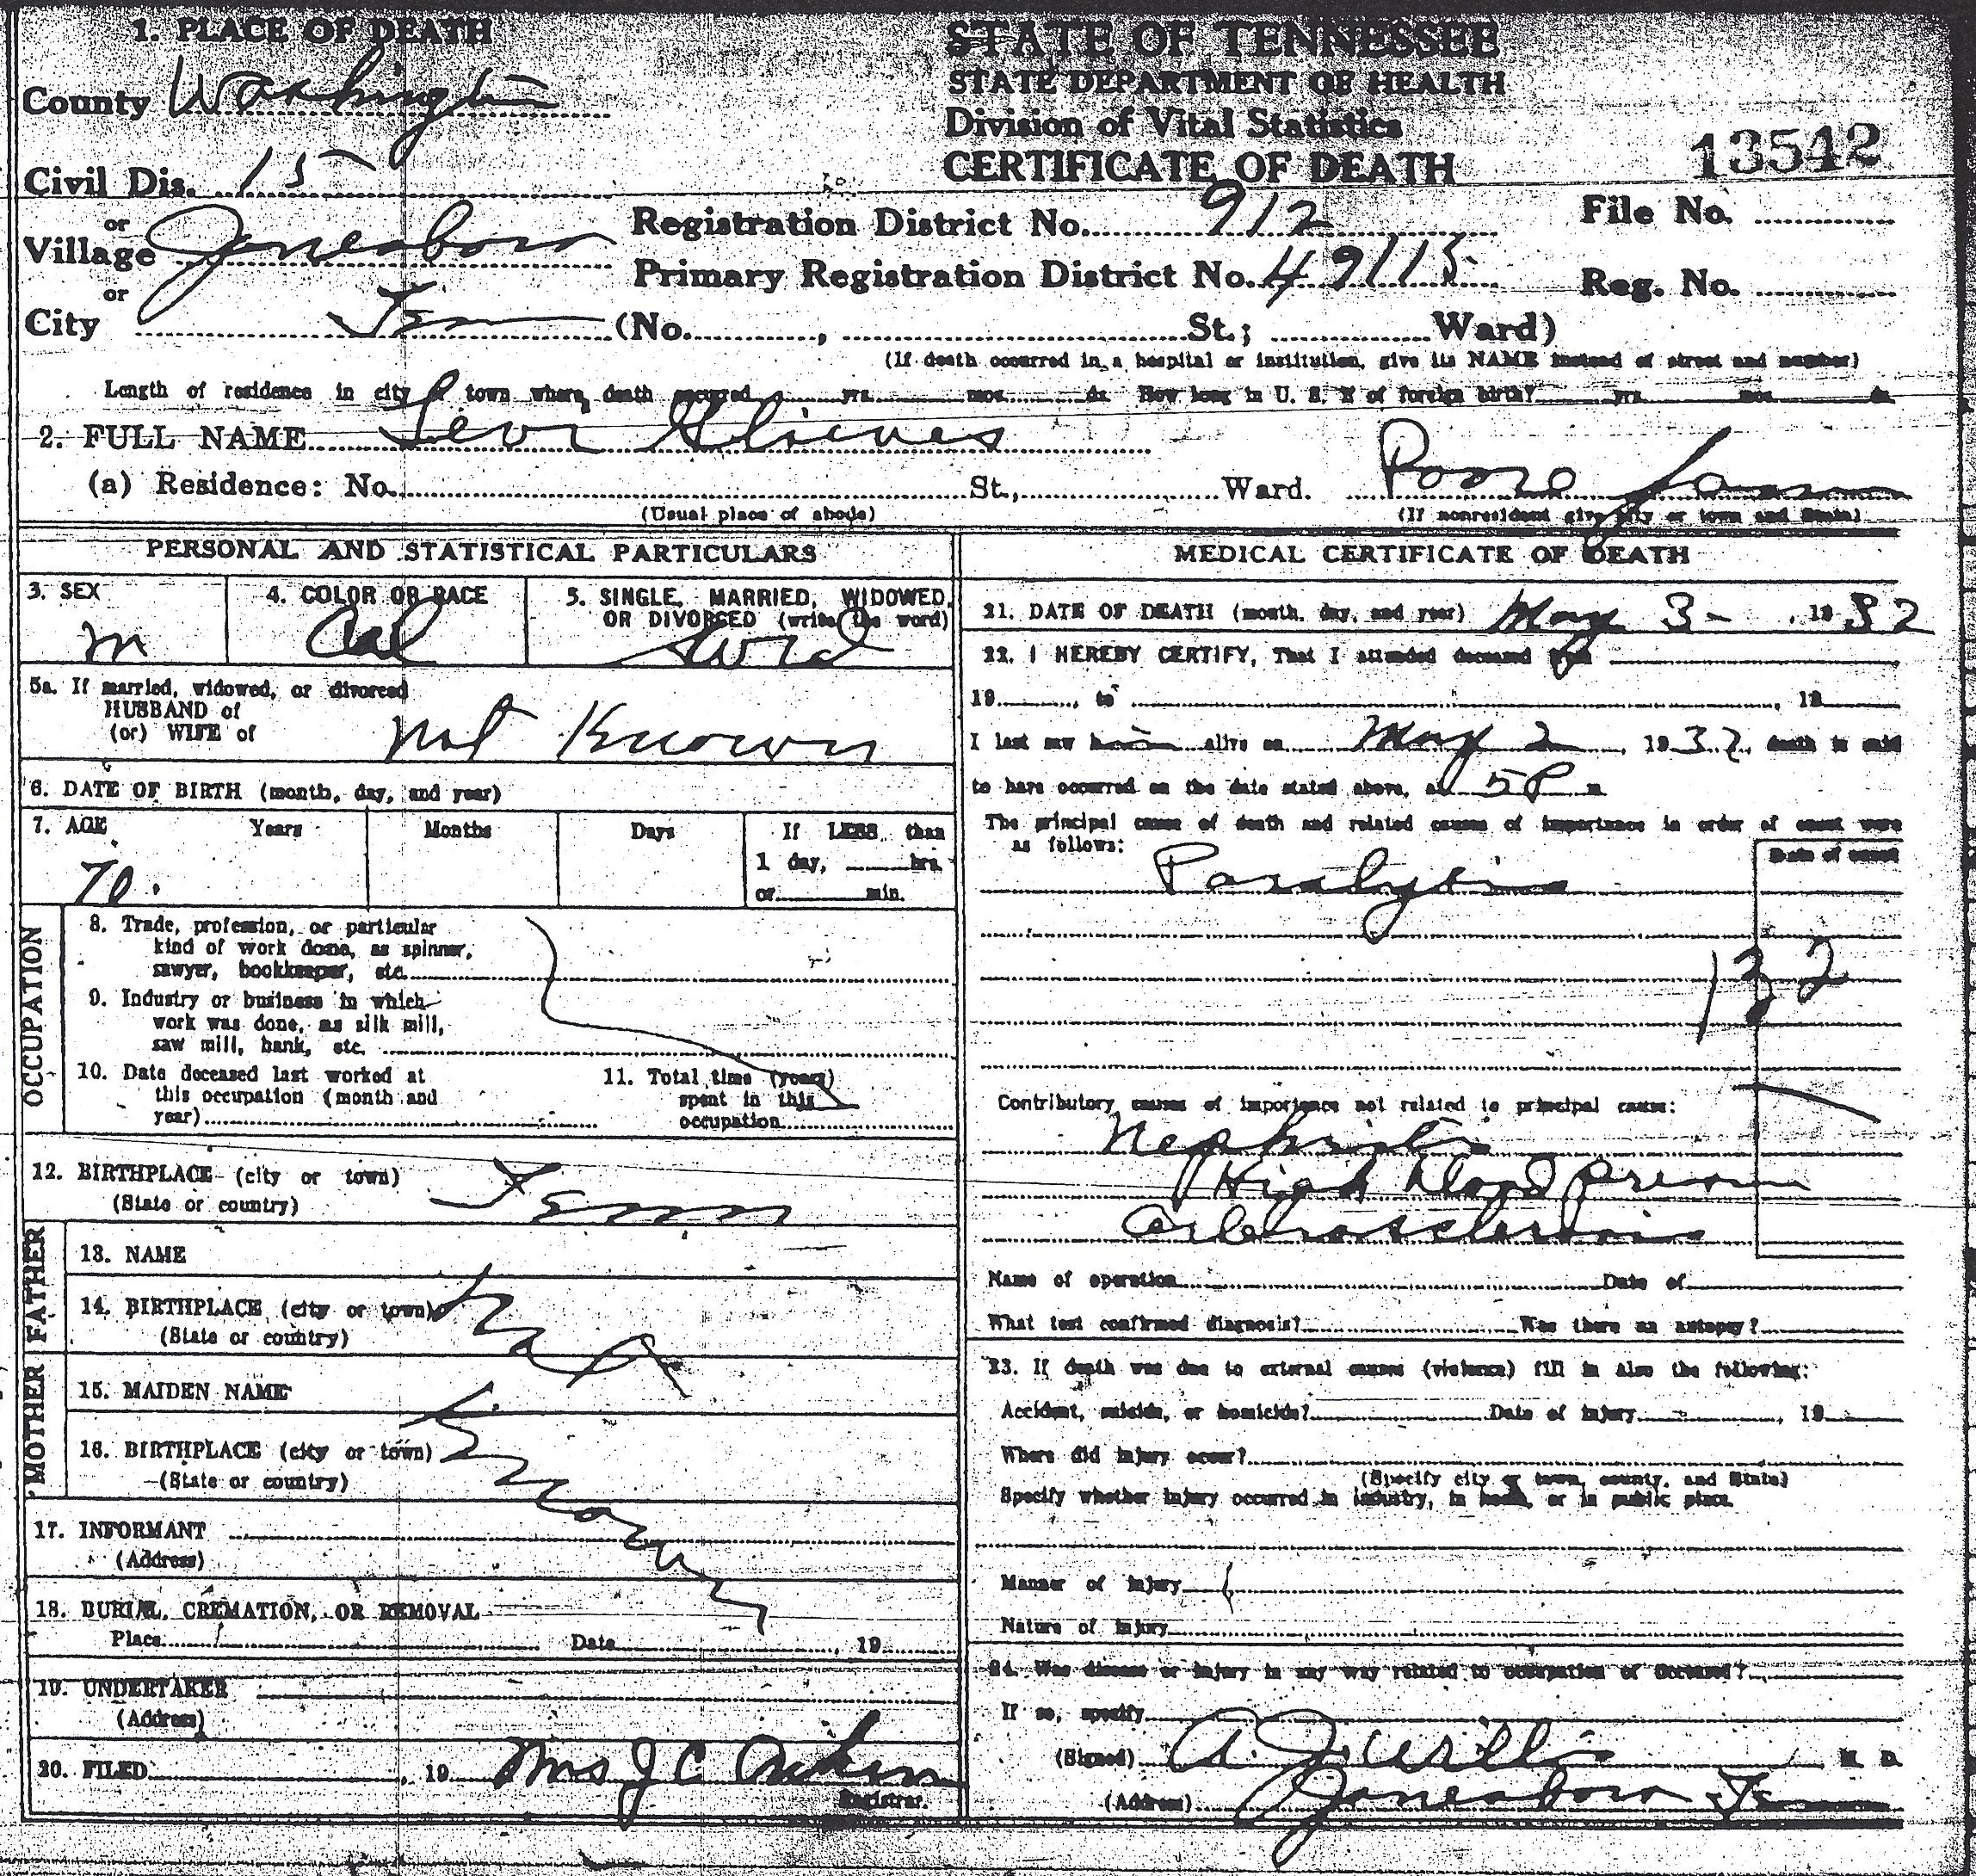 1. PLACE OF DEATH
County Washington
Civil Dis. 15
or
Village Jonesboro
or
City Tenn (No. , St.; Ward)
STATE OF TENNESSEE
STATE DEPARTMENT OF HEALTH
Division of Vital Statistics
CERTIFICATE OF DEATH
13542
Registration District No. 912
File No.
Primary Registration District No. 49115
Reg. No.
(If death occurred in a hospital or institution, give its NAME instead of street and number)
Length of residence in city or town where death occurred yrs. mos. ds. How long in U. S. if of foreign birth? yrs. mos. ds.
2. FULL NAME
(a) Residence: No. St., Ward. Poore
(Usual place of abode) (If nonresident give city or town and State)
PERSONAL AND STATISTICAL PARTICULARS
3. SEX
m
4. COLOR OR RACE
Col
5. SINGLE, MARRIED, WIDOWED, OR DIVORCED (write the word)
5a. If married, widowed, or divorced
HUSBAND of
(or) WIFE of
not Known
6. DATE OF BIRTH (month, day, and year)
7. AGE Years Months Days If LESS than
1 day, hrs.
or min.
70
OCCUPATION
8. Trade, profession, or particular
kind of work done, as spinner,
sawyer, bookkeeper, etc.
9. Industry or business in which
work was done, as silk mill,
saw mill, bank, etc.
10. Date deceased last worked at
this occupation (month and
year)
11. Total time (years)
spent in this
occupation
12. BIRTHPLACE (city or town)
(State or country)
Tenn
FATHER
13. NAME
14. BIRTHPLACE (city or town)
(State or country)
MOTHER
15. MAIDEN NAME
16. BIRTHPLACE (city or town)
(State or country)
Not
Known
17. INFORMANT
(Address)
18. BURIAL, CREMATION, OR REMOVAL
Place Date , 19
19. UNDERTAKER
(Address)
20. FILED , 19 Mrs J C
Registrar.
MEDICAL CERTIFICATE OF DEATH
21. DATE OF DEATH (month, day, and year) May 3- , 1932
22. I HEREBY CERTIFY, That I attended deceased from
19 , to , 19
I last saw him alive on May 2 , 1932, death is said
to have occurred on the date stated above, at 5 P m
The principal cause of death and related causes of importance in order of onset were
as follows:
Date of onset
Paralysis
132
Contributory causes of importance not related to principal cause:
Nephritis
High blood pressure
Arteriosclerosis
Name of operation Date of
What test confirmed diagnosis? Was there an autopsy?
23. If death was due to external causes (violence) fill in also the following:
Accident, suicide, or homicide? Date of injury , 19
Where did injury occur?
(Specify city or town, county, and State)
Specify whether injury occurred in industry, in home, or in public place.
Manner of injury
Nature of injury
24. Was disease or injury in any way related to occupation of deceased?
If so, specify
(Signed) A. J. Willis M. D.
(Address) Jonesboro Tenn